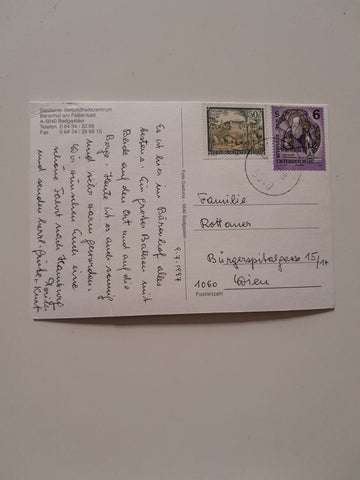 Gasteiner Gesundheitszentrum
Bärenhof am Felsenbad
A-5640 Badgastein
Telefon 0 64 34 / 33 66
Fax 0 64 34 / 25 69 15
9.7.1997
Es ist hier im Bärenhof alles
bestens. Ein großer Balkon mit
Blick auf den Ort und auf die
Berge. Heute ist es auch sonnig
und sehr warm geworden.
Wir wünschen Euch eine
schöne Fahrt nach Hamburg
und senden herzl. Grüße
+ Kurt
5640
50
S 6
REPUBLIK ÖSTERREICH
Familie
Rottauer
Bürgerspitalgasse 15/14
1060 Wien
Postleitzahl